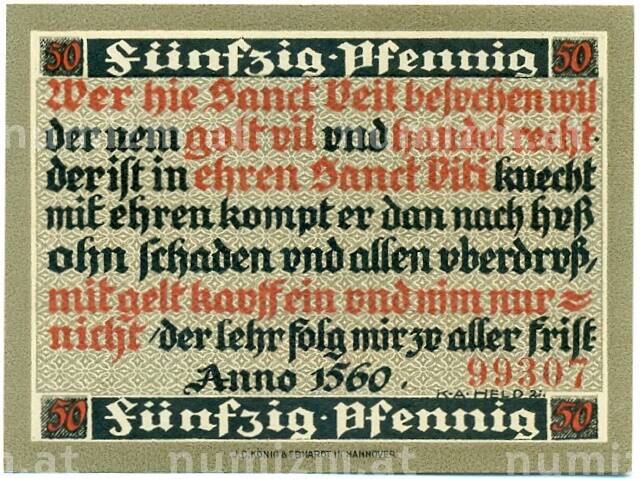 50 Fünfzig·Pfennig 50
Wer hie Sanct Veit besvchen wil
der nem golt vil vnd handel recht·
der ist in ehren Sanct Viti knecht
mit ehren kompt er dan nach hvß
ohn schaden vnd allen vberdrvß,
mit gelt kauff ein vnd nim nur =
nicht / der lehr folg mir zv aller frist
Anno 1560.
99307
K·A·HELD 21.
50 Fünfzig·Pfennig 50
J.C.KÖNIG & EBHARDT IN HANNOVER
numizm.at